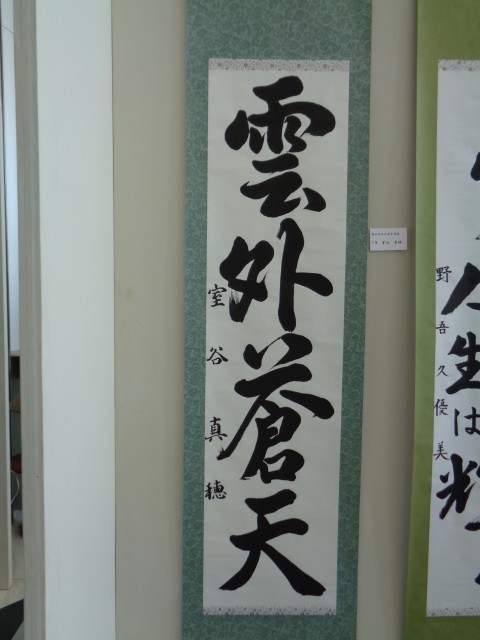 雲外蒼天
室谷真穂
人生は輝
野吾久優美